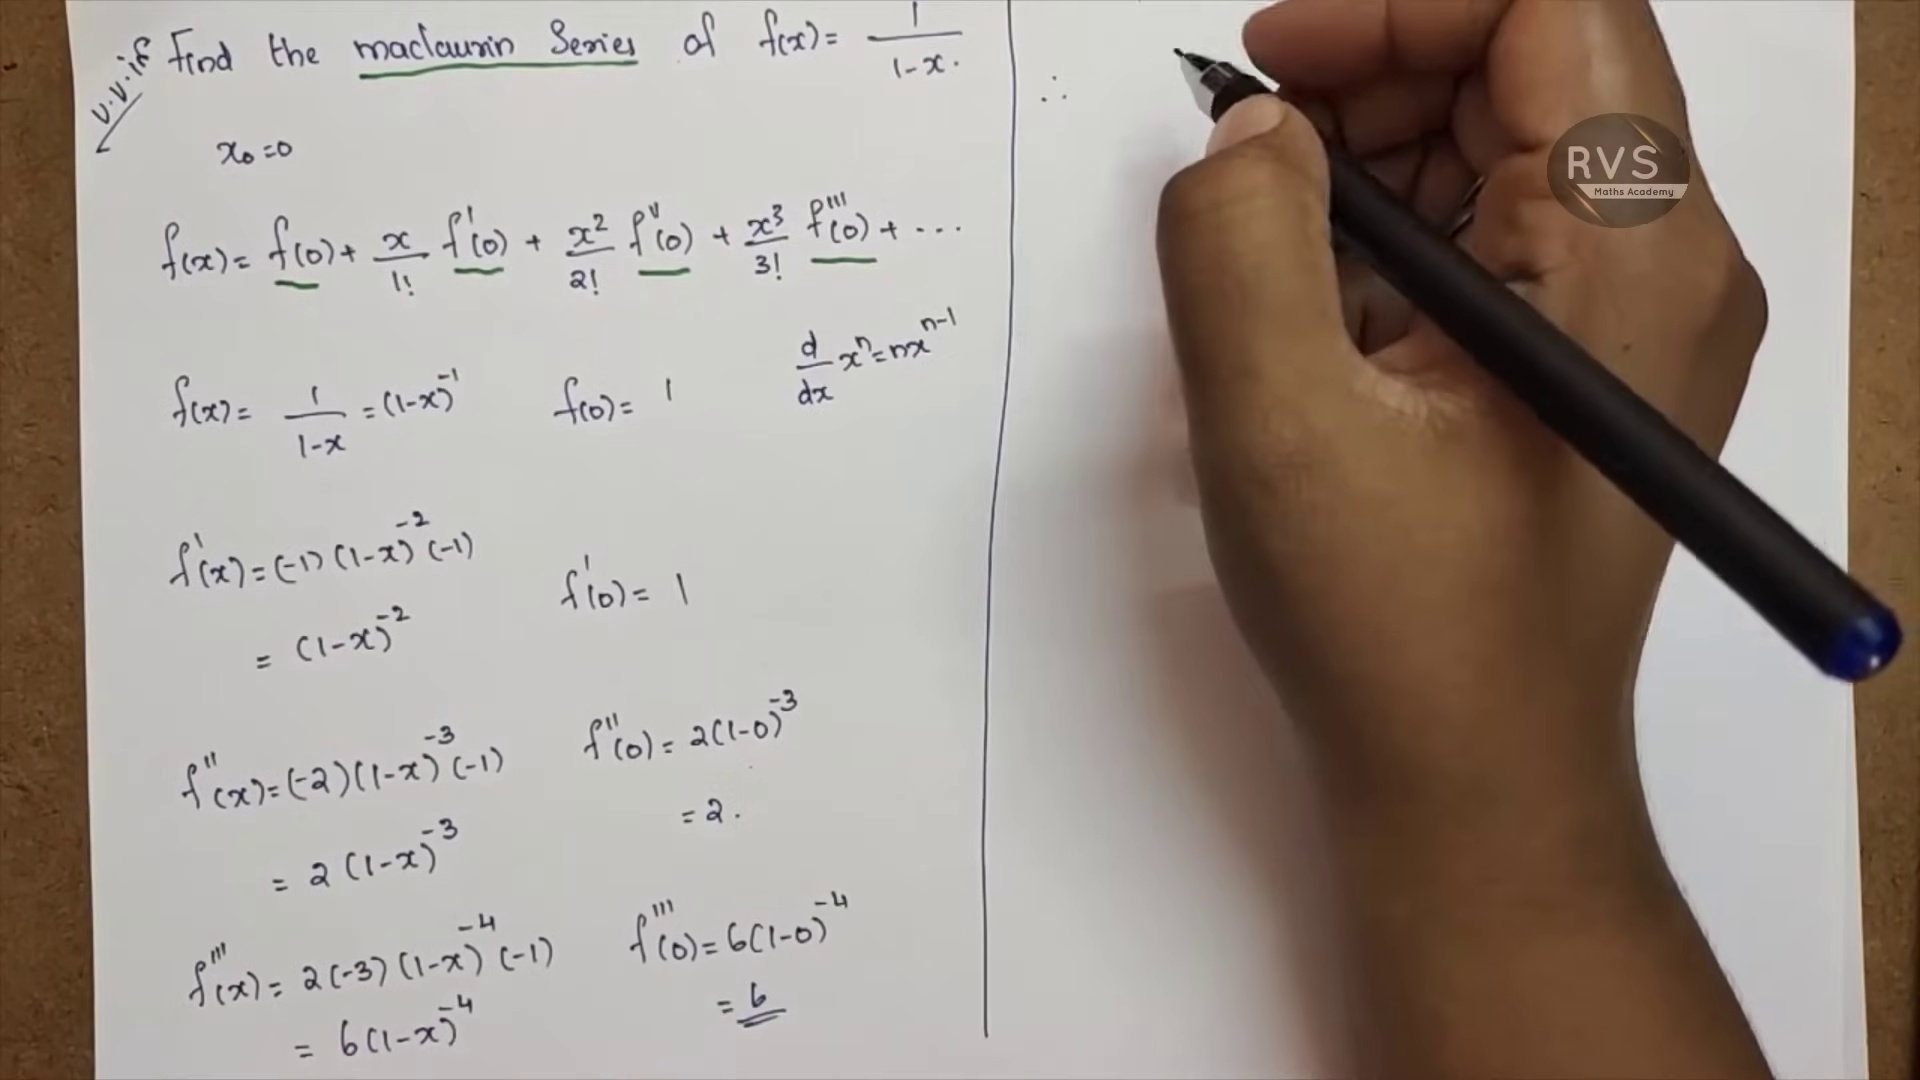 v.v.if Find the maclaurin Series of f(x) = 1/(1-x).
x₀ = 0
f(x) = f(0) + x/1! f'(0) + x²/2! f''(0) + x³/3! f'''(0) + ...
f(x) = 1/(1-x) = (1-x)⁻¹ f(0) = 1 d/dx xⁿ = nxⁿ⁻¹
f'(x) = (-1)(1-x)⁻²(-1) f'(0) = 1
= (1-x)⁻²
f''(x) = (-2)(1-x)⁻³(-1) f''(0) = 2(1-0)⁻³
= 2(1-x)⁻³ = 2.
f'''(x) = 2(-3)(1-x)⁻⁴(-1) f'''(0) = 6(1-0)⁻⁴
= 6(1-x)⁻⁴ = 6
∴
RVS
Maths Academy